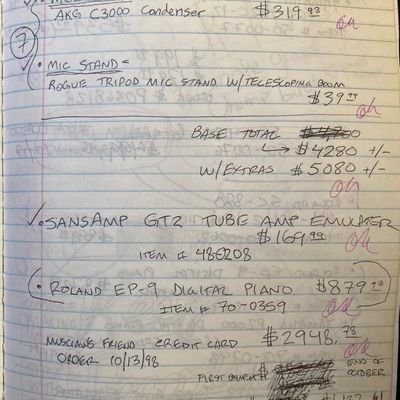 AKG C3000 Condenser $319.93 OK
7
✓ • MIC STAND =
ROGUE TRIPOD MIC STAND W/TELESCOPING BOOM
$39.99 OK
BASE TOTAL
→ $4280 +/-
W/EXTRAS $5080 +/-
OK
✓ • SANSAMP GT2 TUBE AMP EMULATER
$169.99 OK
ITEM # 486208
• ROLAND EP-9 DIGITAL PIANO $879.93
ITEM # 70-0359 OK
MUSCIANS FRIEND CREDIT CARD $2948.78
ORDER 10/13/98 OK
FIRST PAYMENT $ END OF
OCTOBER